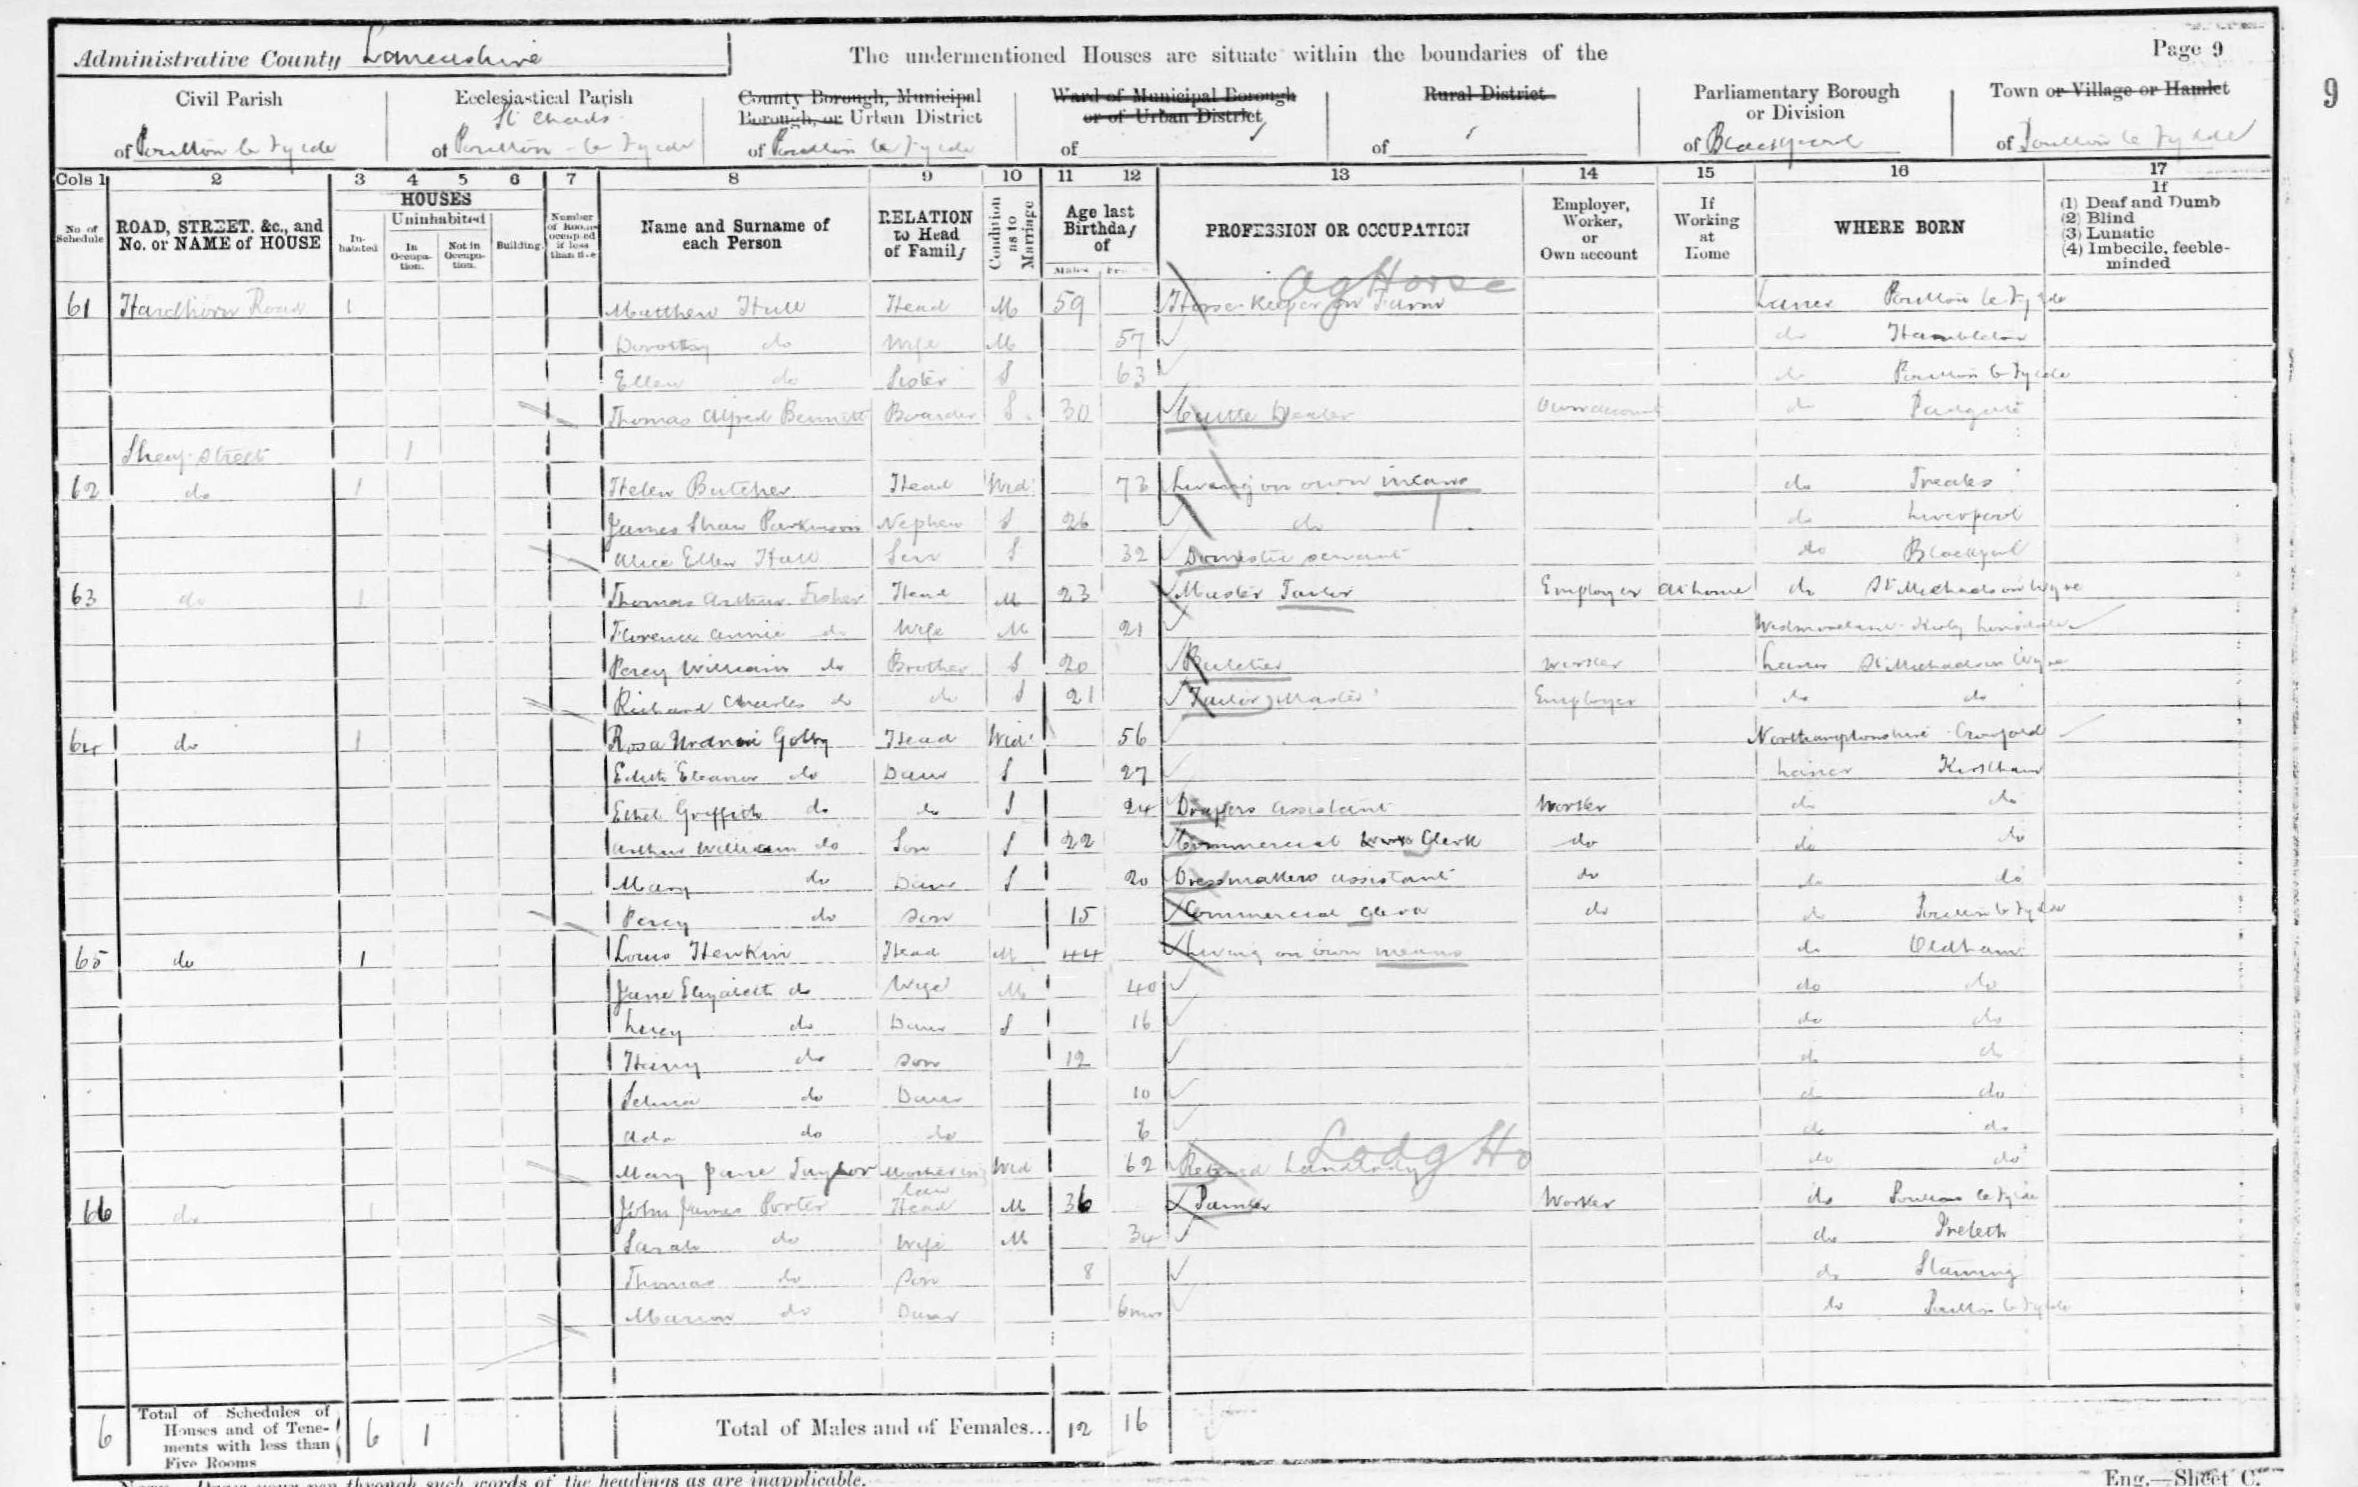 Administrative County Lancashire
The undermentioned Houses are situate within the boundaries of the
Page 9
9
Civil Parish
of Poulton le Fylde
Ecclesiastical Parish
St Chads
of Poulton-le Fylde
County Borough, Municipal
Borough, or Urban District
of Poulton le Fylde
Ward of Municipal Borough
or of Urban District
of
Rural District
of
Parliamentary Borough
or Division
of Blackpool
Town or Village or Hamlet
of Poulton le Fylde
Cols 1 2 3 4 5 6 7 8 9 10 11 12 13 14 15 16 17
No of Schedule
ROAD, STREET, &c., and
No. or NAME of HOUSE
HOUSES
Inhabited
Uninhabited
In Occupation.
Not in Occupation.
Building.
Number of Rooms occupied if less than five
Name and Surname of
each Person
RELATION
to Head
of Family
Condition as to Marriage
Age last
Birthday
of
Males
PROFESSION OR OCCUPATION
Employer,
Worker,
or
Own account
If
Working
at
Home
WHERE BORN
If
(1) Deaf and Dumb
(2) Blind
(3) Lunatic
(4) Imbecile, feeble-
minded
Ag Horse
61 Hardhorn Road 1 Matthew Hull Head M 59 Horse-keeper on Farm Lancr Poulton le Fylde
Dorothy do Wife M 57 do Hambleton
Ellen do Sister S 63 do Poulton le Fylde
Thomas Alfred Bennett Boarder S. 30 Cattle Dealer Own account do Padgate
Sheaf Street 1
62 do 1 Helen Butcher Head Wid 73 Living on own means do Treales
James Shaw Parkinson Nephew S 26 do do Liverpool
Alice Ellen Hall Serv S 32 Domestic servant do Blackpool
63 do 1 Thomas Arthur Fisher Head M 23 Master Tailor Employer At home do St Michaels on Wyre
Florence Annie do Wife M 21 Westmoreland Kirby Lonsdale
Percy William do Brother S 20 Butcher Worker Lancr St Michaels on Wyre
Richard Charles do do S 21 Tailor, Master Employer do do
64 do 1 Rosa Golby Head Wid 56 Northamptonshire Cranford
Edith Eleanor do Daur S 27 Lancr Kirkham
Ethel Griffith do do S 24 Drapers assistant Worker do do
Arthur William do Son S 22 Commercial Clerk do do do
Mary do Daur S 20 Dressmakers assistant do do do
Percy do Son 15 Commercial Clerk do do Poulton le Fylde
65 do 1 Louis Henkin Head M 44 Living on own means do Oldham
Jane Elizabeth do Wife M 40 do do
Lucy do Daur S 16 do do
Harry do Son 12 do do
Selina do Daur 10 do do
Ada do do 6 do do
Lodg Ho
Mary Jane Taylor Mother in law Wid 62 Retired Landlady do do
66 do 1 John James Porter Head M 36 Painter Worker do Poulton le Fylde
Sarah do Wife M 34 do Preleth
Thomas do Son 8 do Staining
Marion do Daur 6 mos do Poulton le Fylde
6 Total of Schedules of
Houses and of Tene-
ments with less than
Five Rooms 6 1 Total of Males and of Females... 12 16
Note—Draw your pen through such words of the headings as are inapplicable.
Eng.—Sheet C.